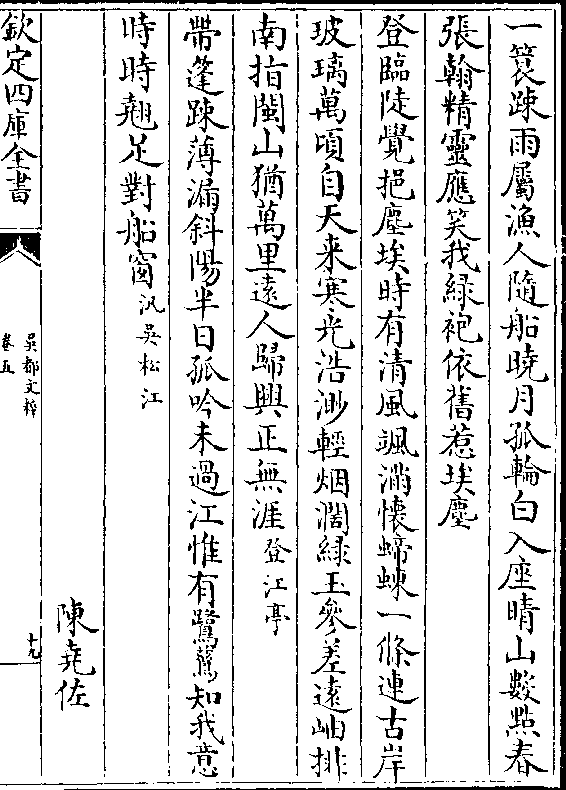 一蓑踈雨屬漁人隨船曉月孤輪白入座晴山數㸃春
張翰精靈應笑我緑袍依舊惹埃塵
登臨陡覺挹塵埃時有清風颯滿懷螮蝀一條連古岸
玻璃萬頃自天來寒光浩渺輕烟濶緑玉參差遠岫排
南指閩山猶萬里遠人歸興正無涯登江亭
帶篷踈薄漏斜陽半日孤吟未過江惟有鷺鶿知我意
時時翹足對船窗汎吳松江
陳堯佐
欽定四庫全書
吳都文粹
卷五
十九